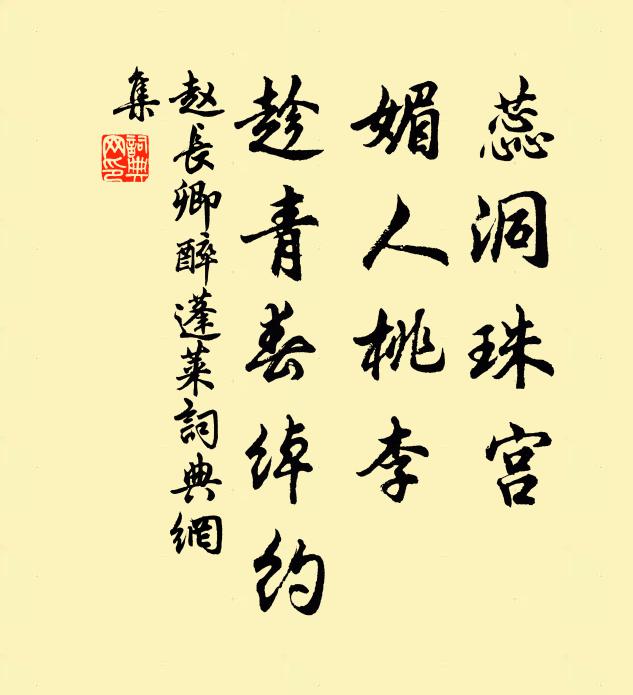 蕊洞珠宫
媚人桃李
趁青春绰约
赵長卿醉蓬莱詞典網
集
詞典網印